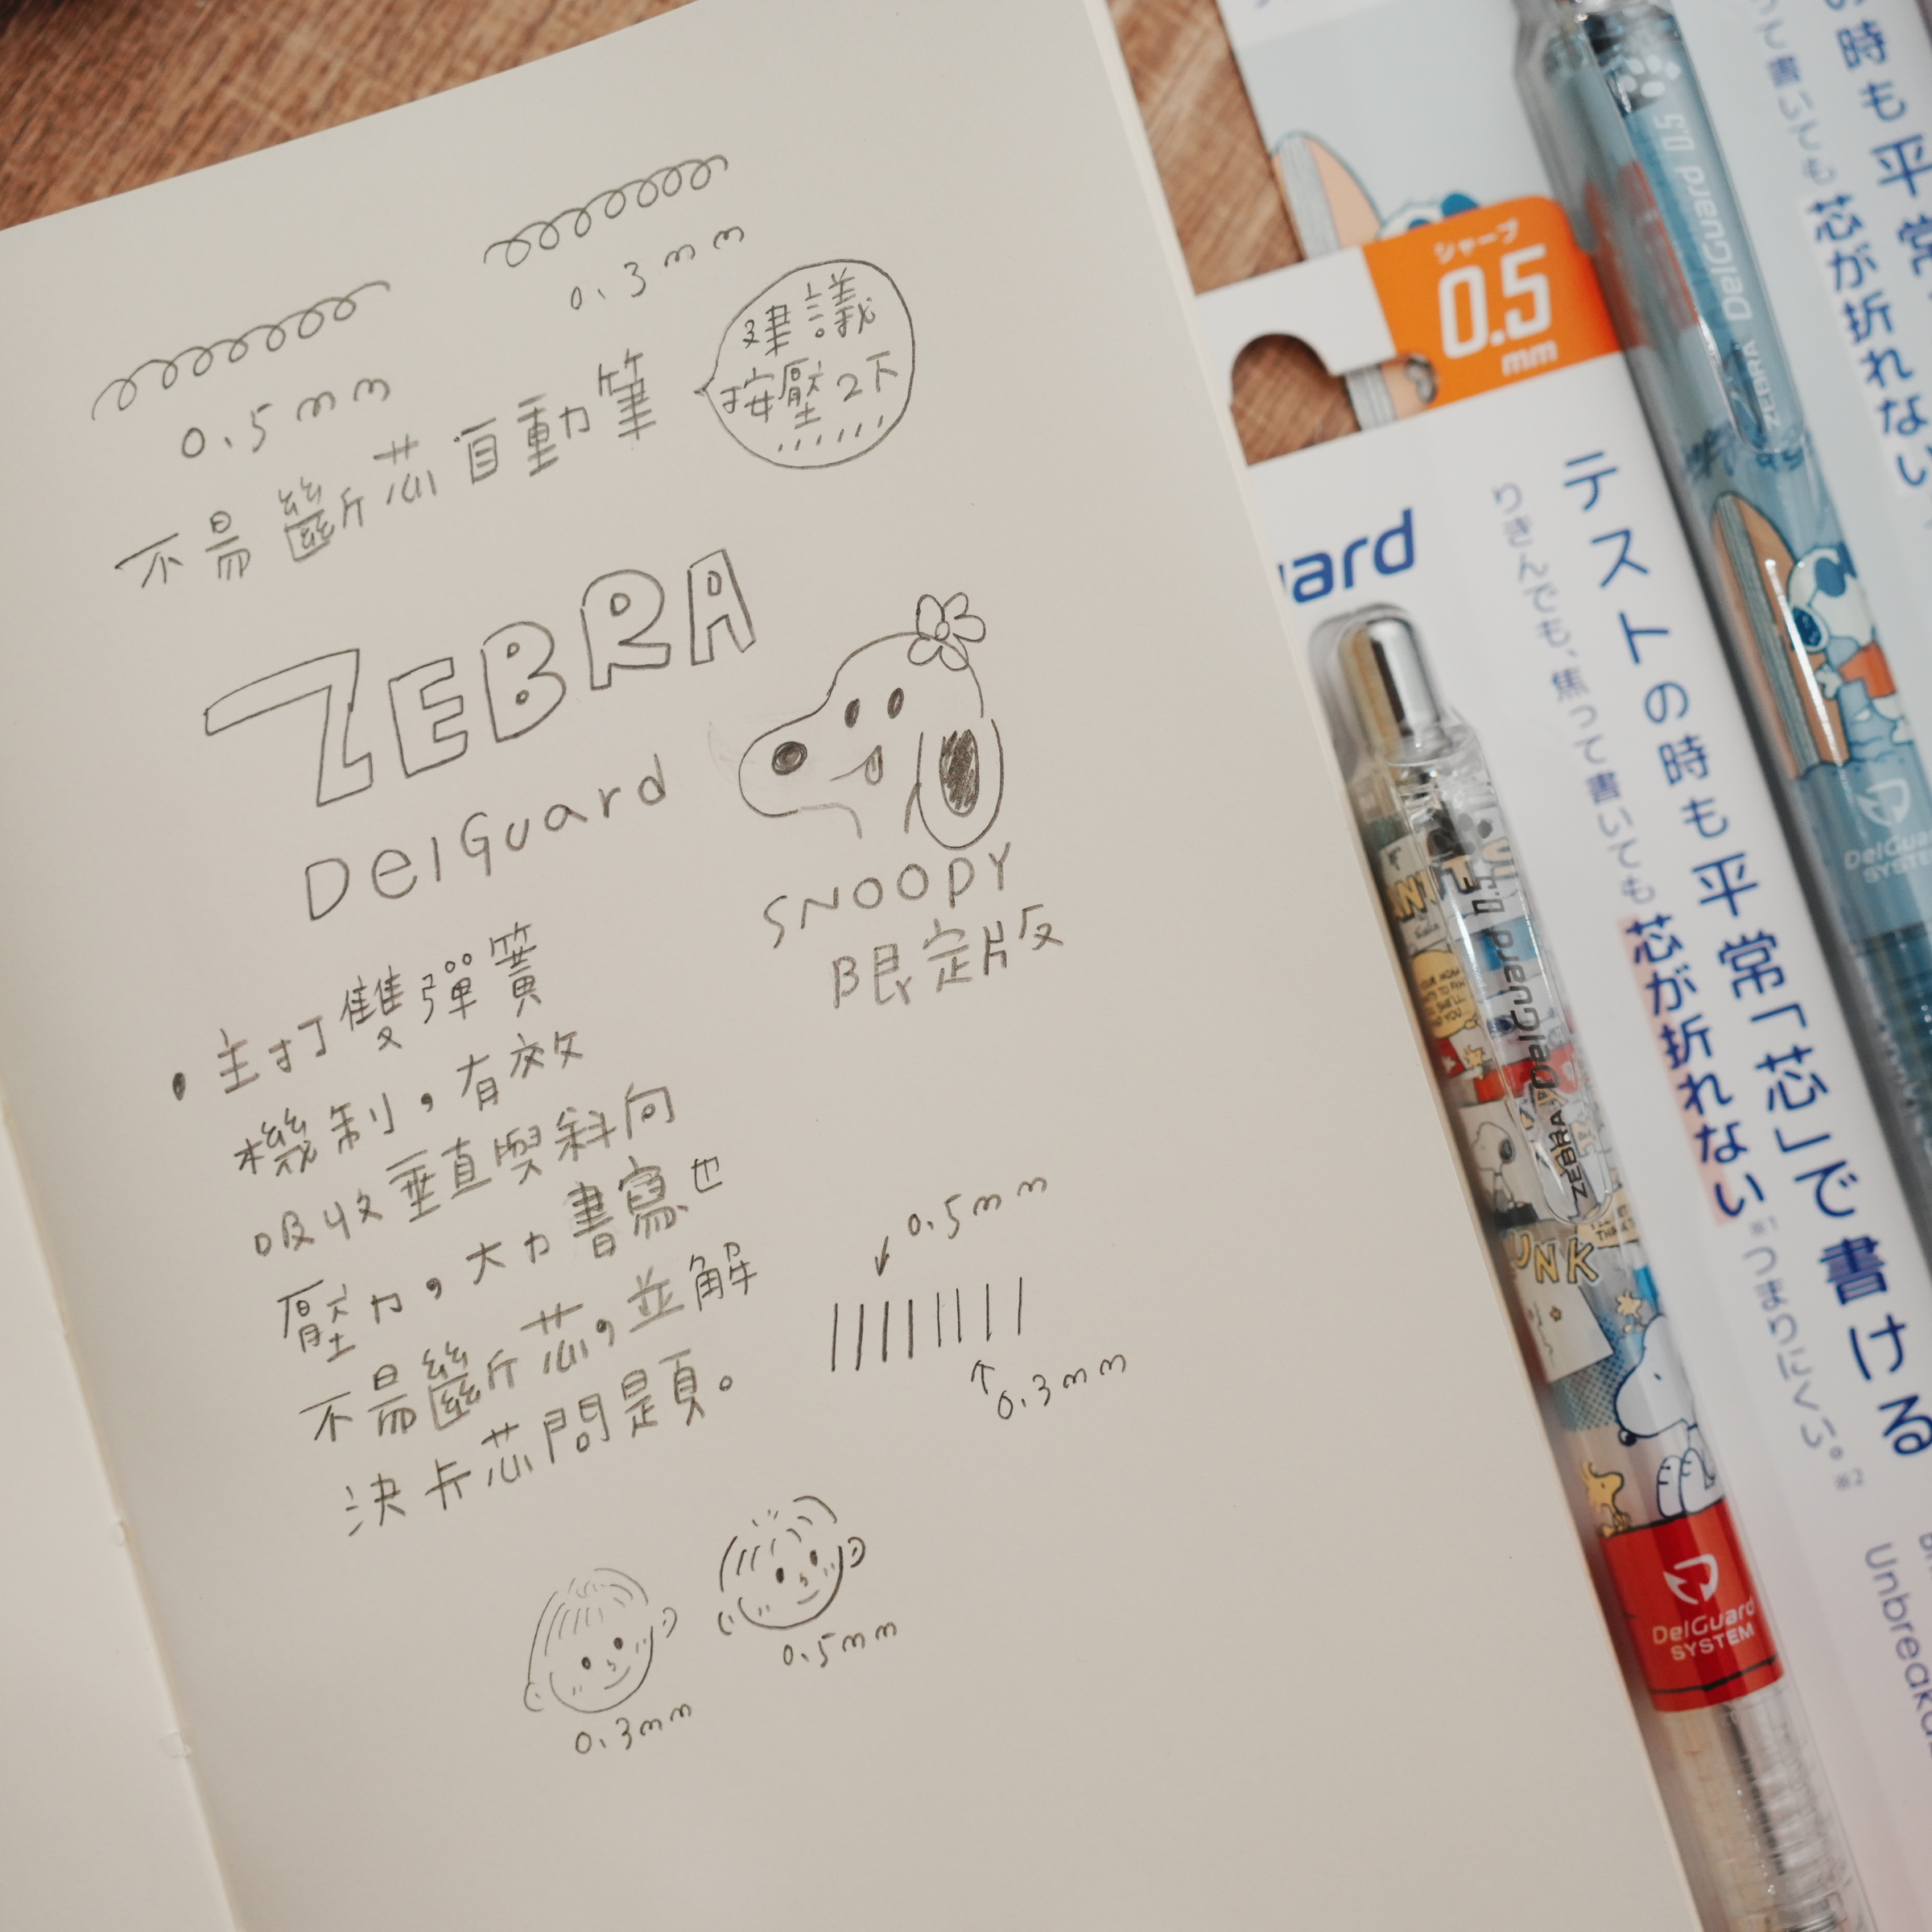 0.3mm
0.5mm
建議
按壓2下
不易斷芯自動筆
ZEBRA
DelGuard
SNOOPY
限定版
• 主打雙彈簧
機制,有效
吸收垂直與斜向
壓力,大力書寫也
不易斷芯,並解
決卡芯問題。
0.5mm
0.3mm
0.3mm
0.5mm
シャープ
0.5
mm
uard
テストの時も平常「芯」で書ける
りきんでも、焦って書いても芯が折れない※1つまりにくい。※2
Unbreaka
ZEBRA DelGuard 0.5
UNK
DelGuard
SYSTEM
ZEBRA DelGuard 0.5
DelGuard
SYSTEM
時も平常
て書いても芯が折れない